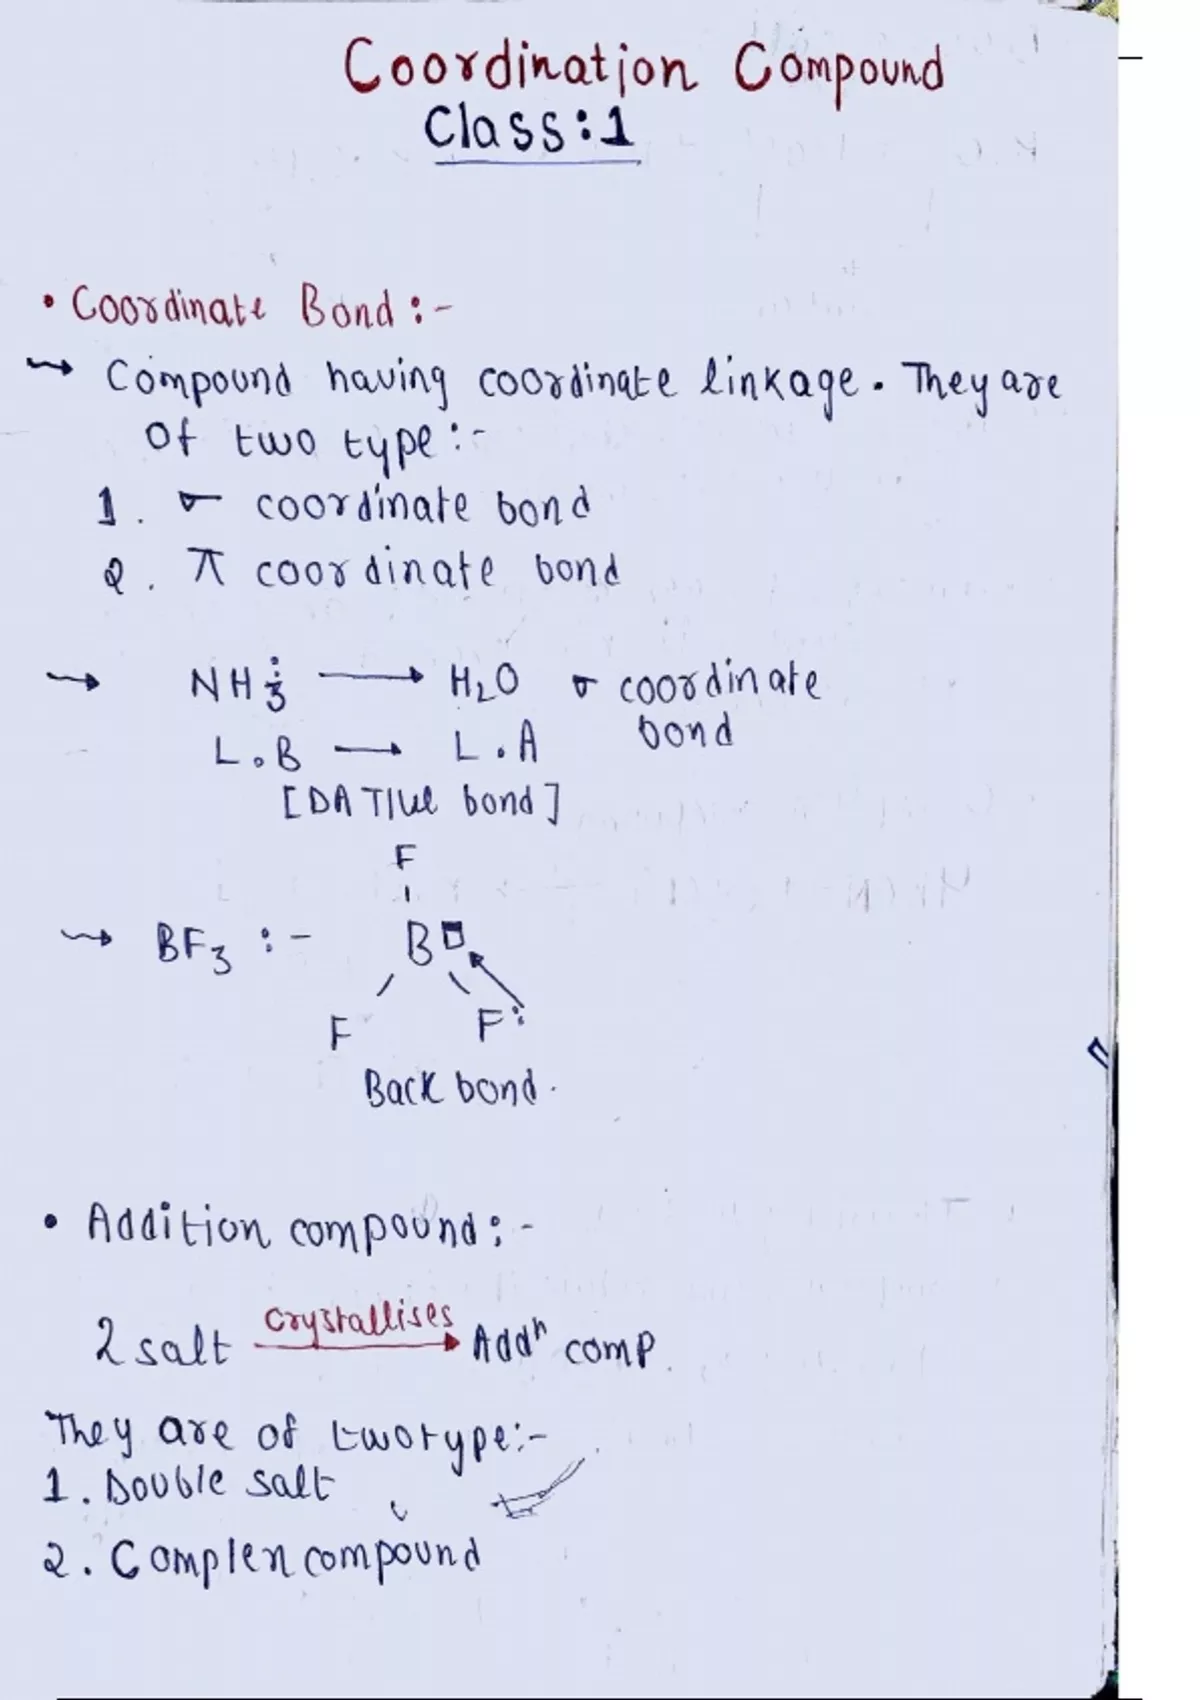 Coordination Compound
Class:1
• Coordinate Bond :-
→ Compound having coordinate linkage. They are
of two type :-
1. σ coordinate bond
2. π coordinate bond
→ NH3: → H2O σ coordinate
bond
L.B → L.A
[DATIVE bond]
F
→ BF3 :- B
F F:
Back bond.
• Addition compound :-
2 salt crystallises→ Addn comp.
They are of two type:-
1. Double salt
2. Complen compound